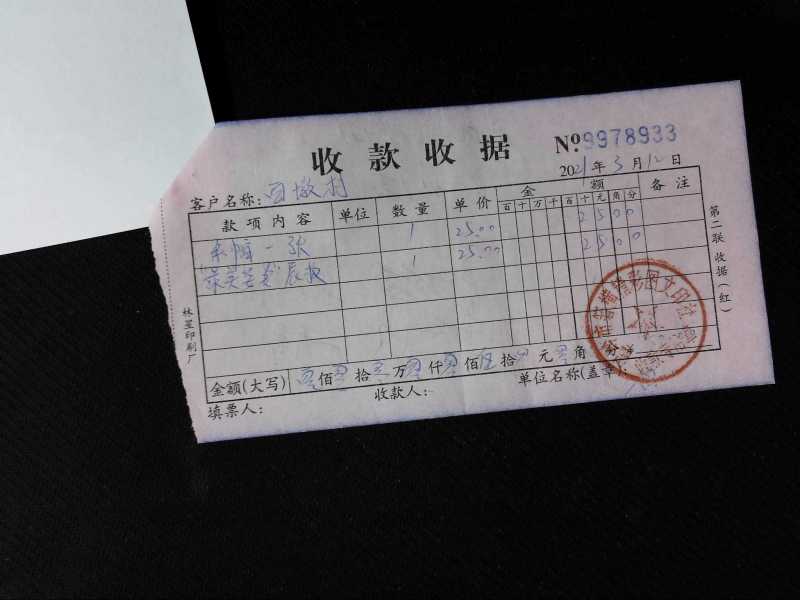 收款收据
Nº.9978933
2021年3月12日
客户名称:
款项内容 单位 数量 单价 金额 备注
百十万千百十元角分
一张 1 25.00 2500
1 25.00 2500
金额(大写) 零佰零拾零万零仟零佰伍拾零元零角 分
填票人: 收款人: 单位名称(盖章):
第二联 收据(红)
林星印刷厂